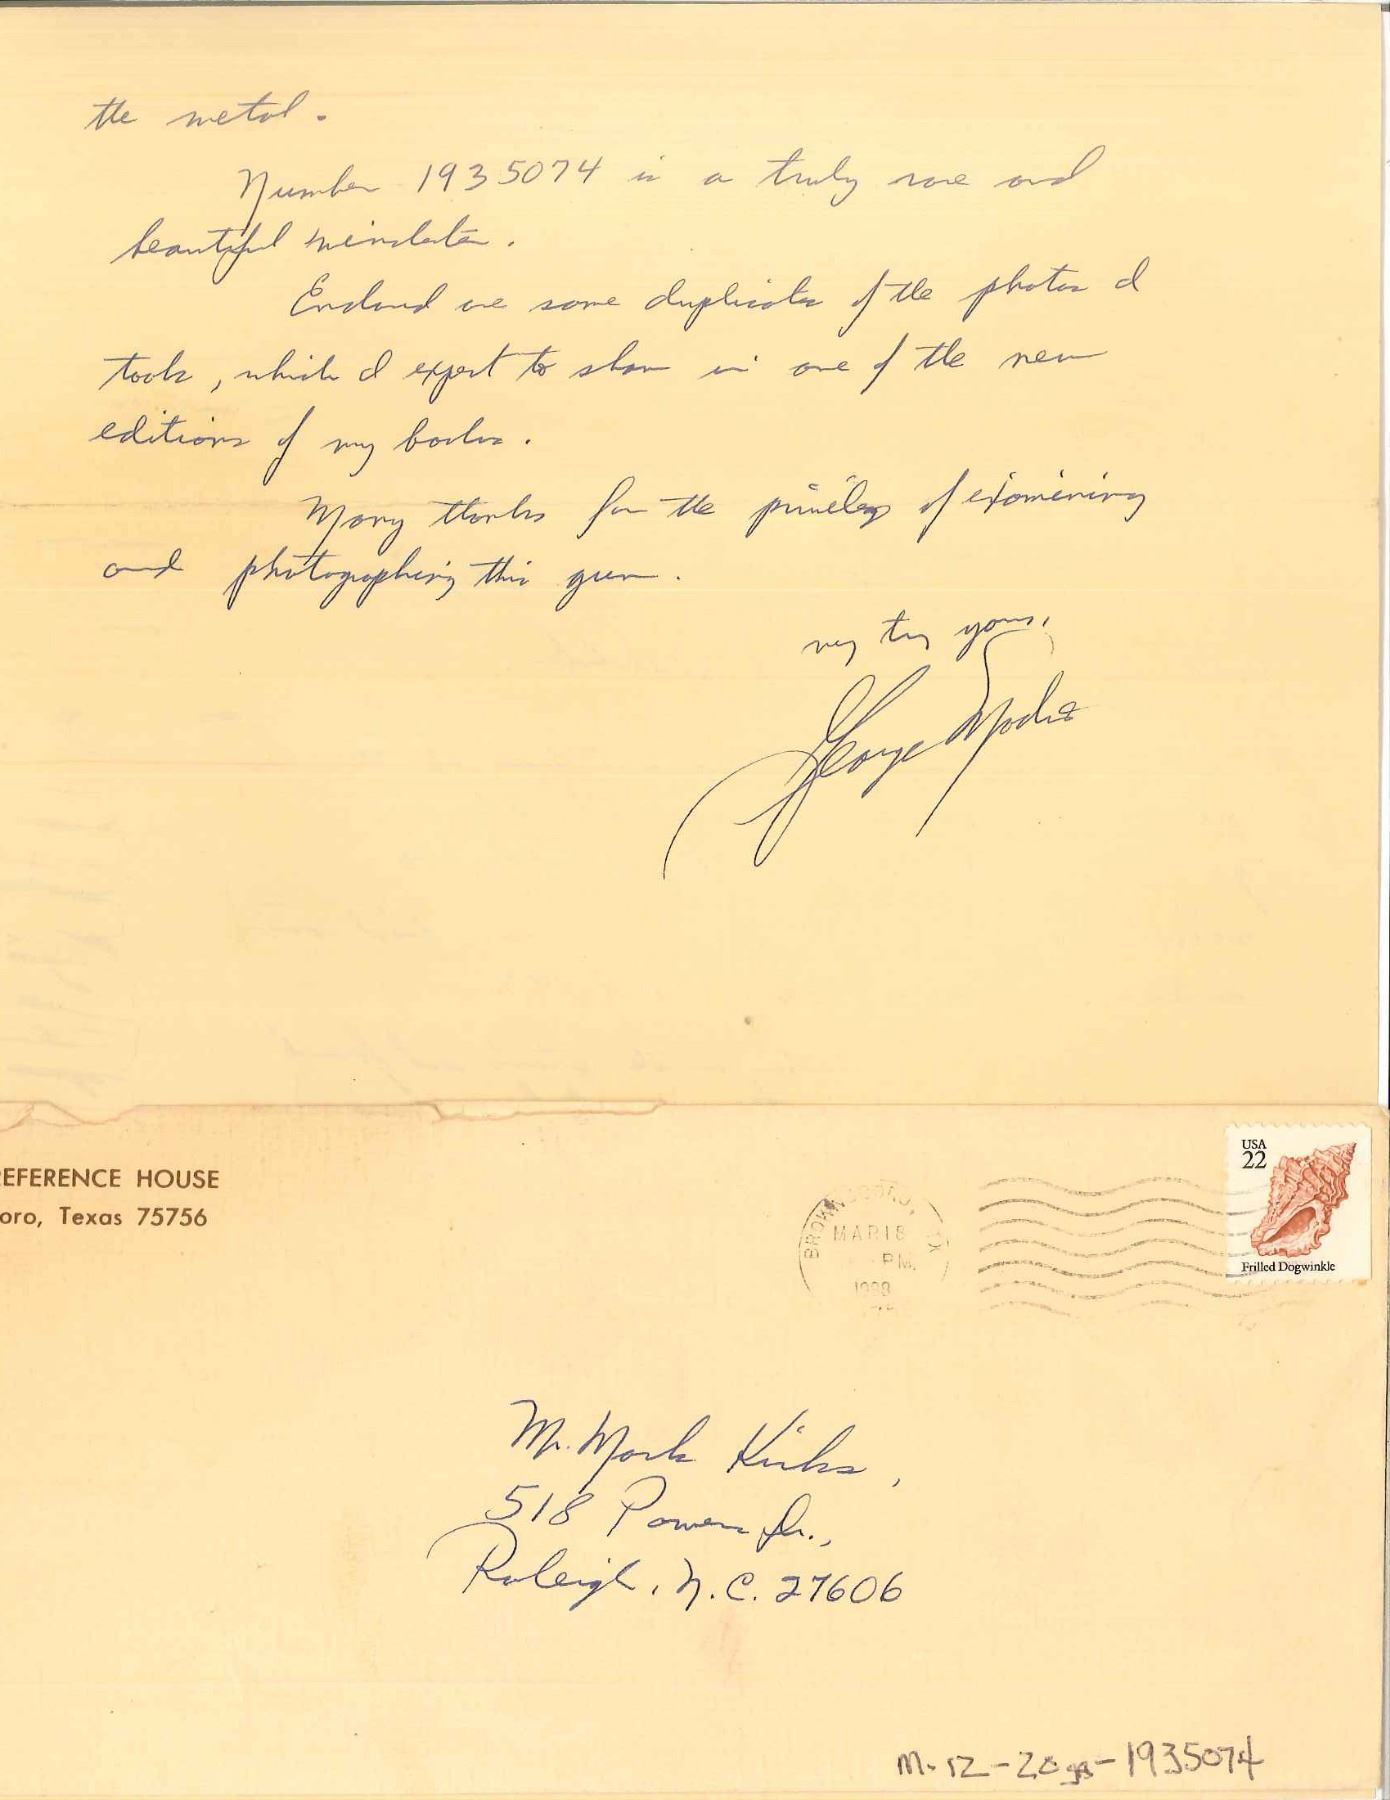 the metal.
Number 1935074 is a truly rare and
beautiful Winchester.
Enclosed are some duplicates of the photos I
took, which I expect to show in one of the new
editions of my books.
Many thanks for the privilege of examining
and photographing this gun.
very truly yours,
George Madis
REFERENCE HOUSE
oro, Texas 75756
BROWNSBORO, TX
MAR 18
PM
1988
USA
22
Frilled Dogwinkle
Mr. Mark Kirks,
518 Powers Dr.,
Raleigh, N.C. 27606
M-12-20ga-1935074